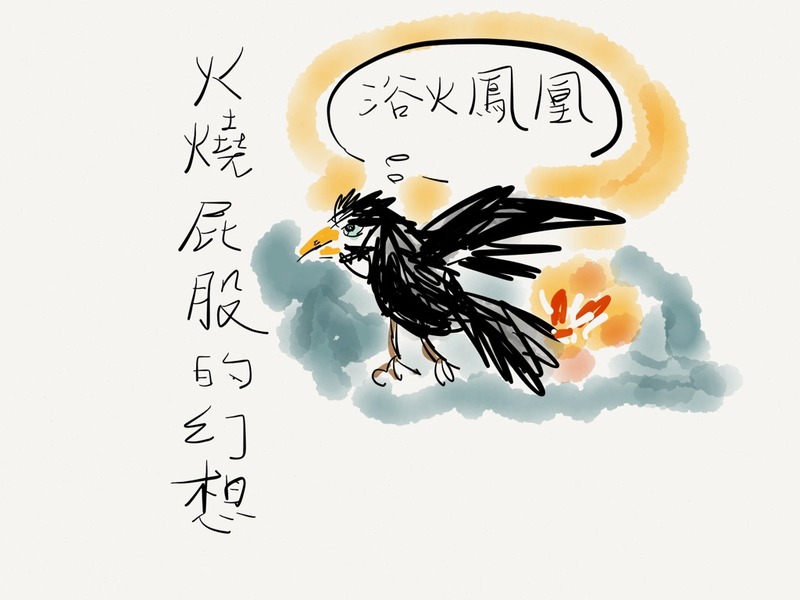 火燒屁股的幻想
浴火鳳凰